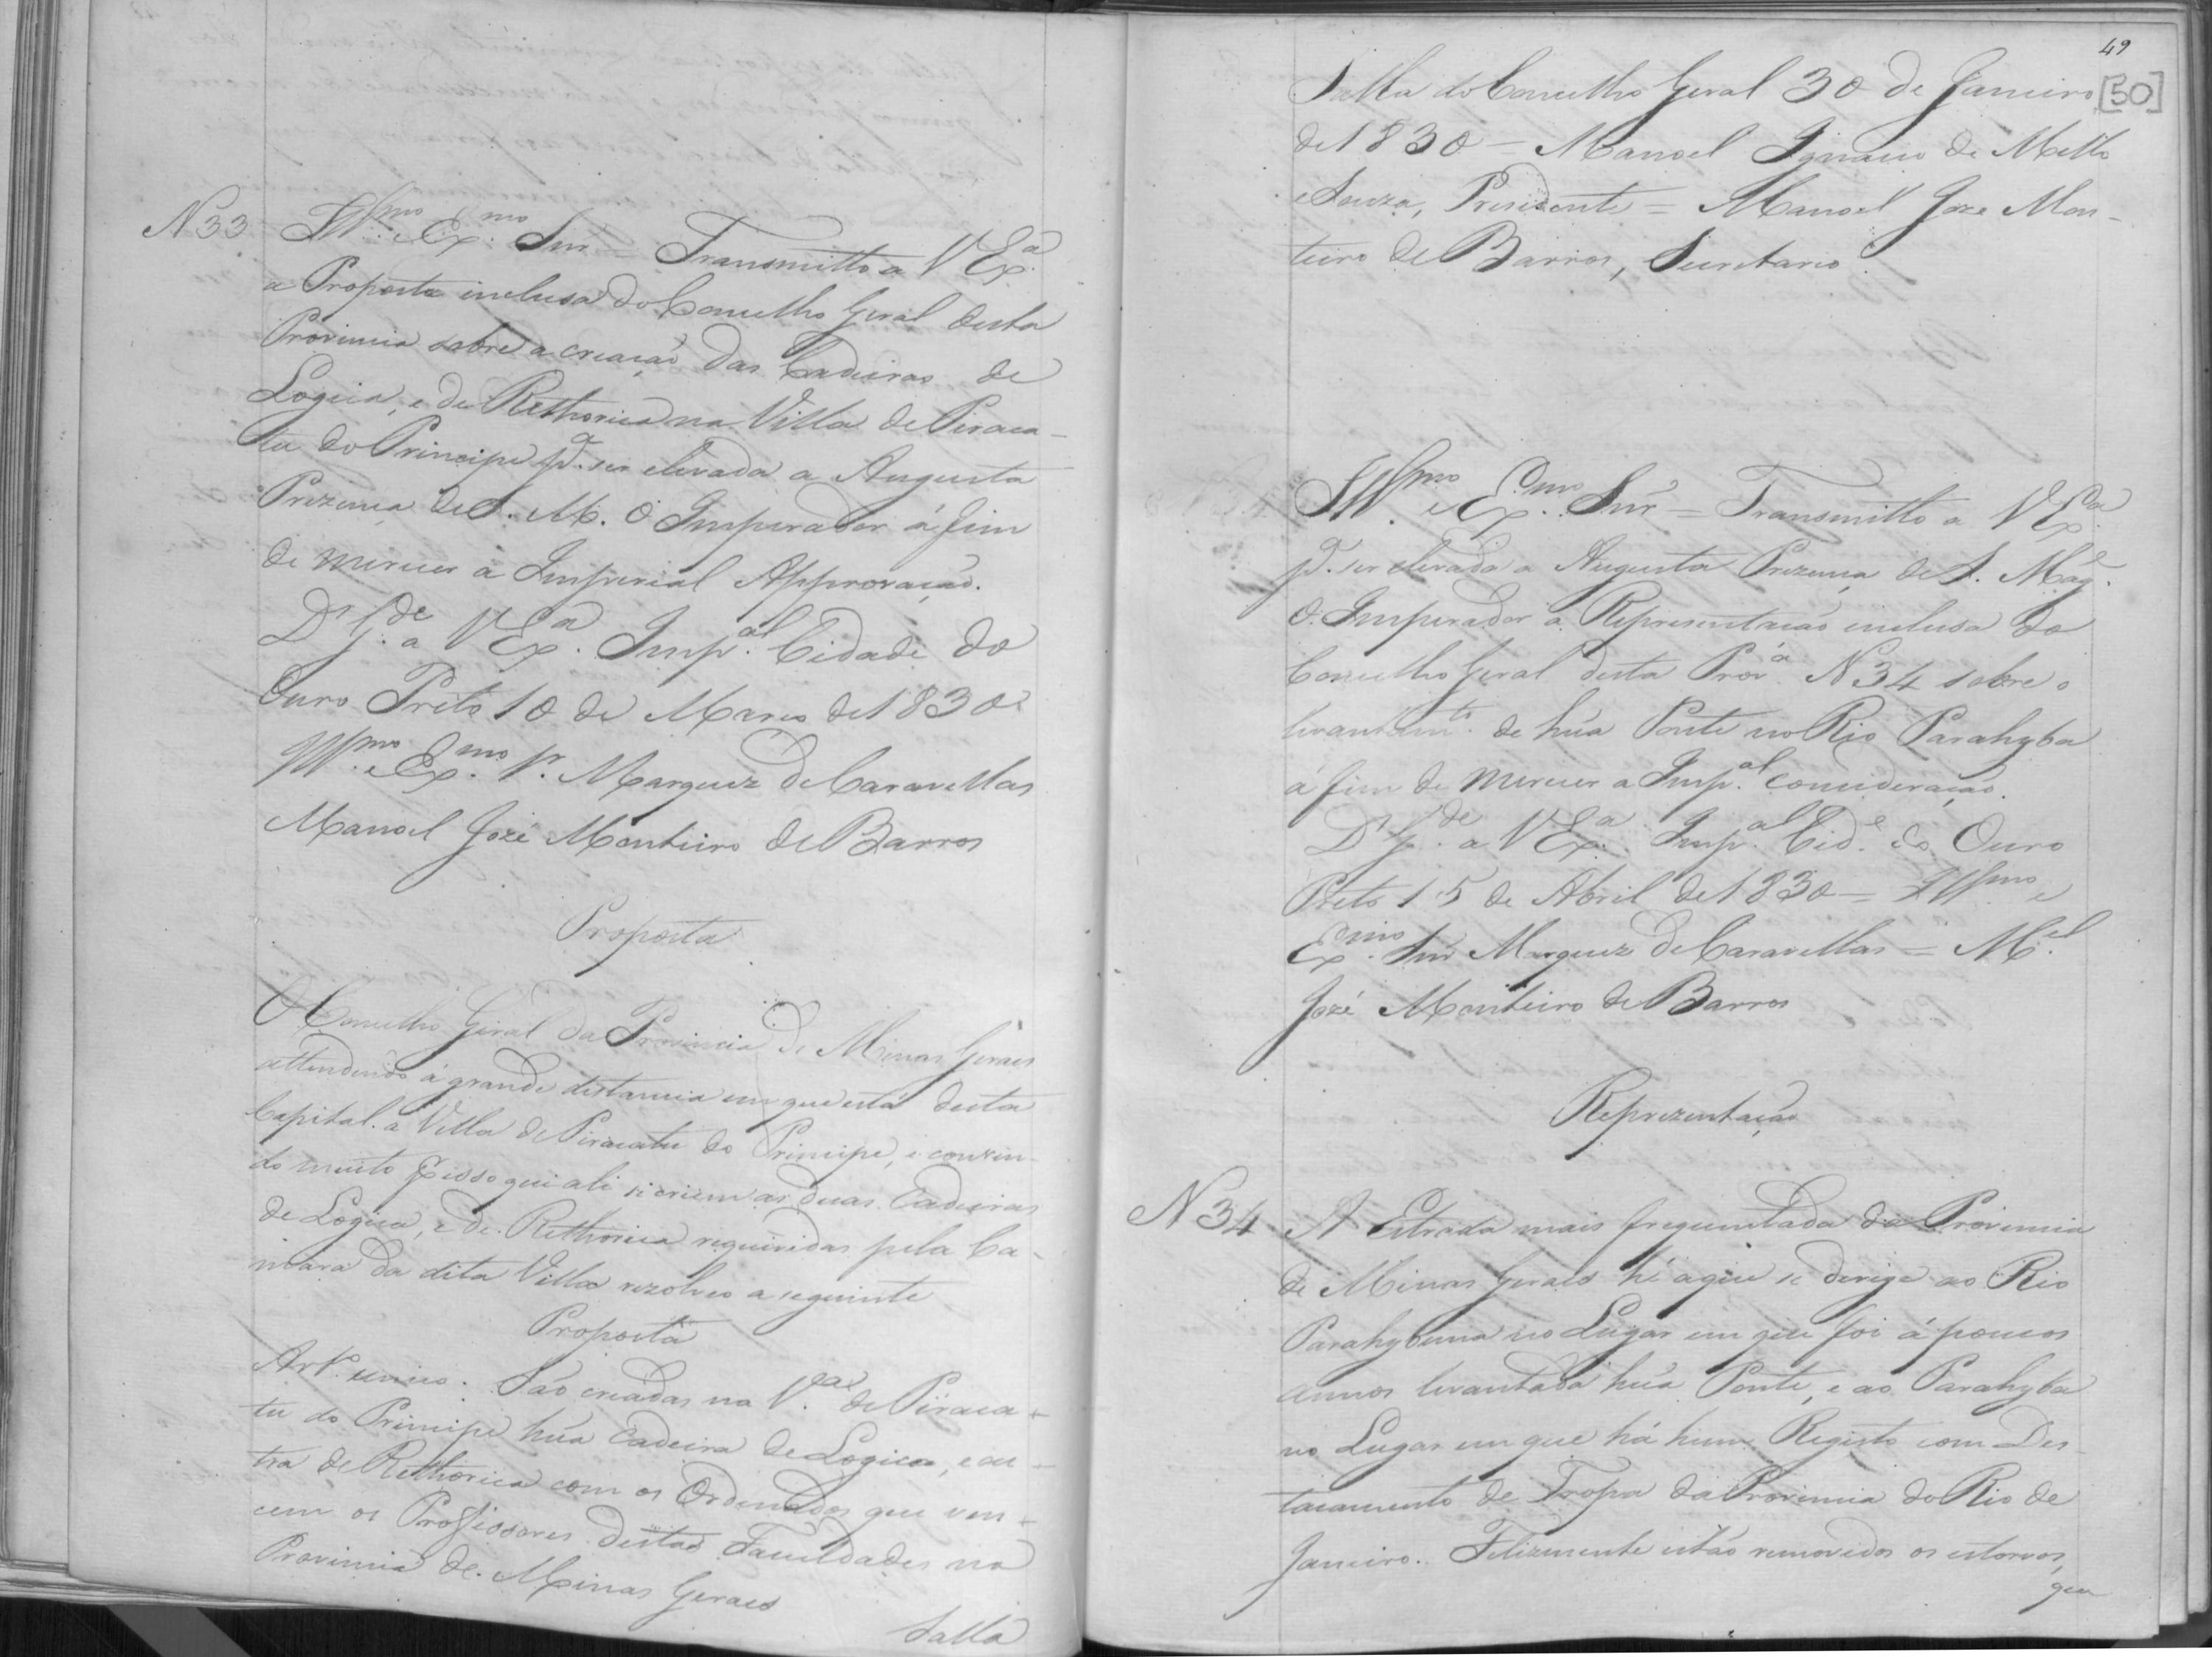 N 33 Ill.mo e Ex.mo Snr = Transmitto a V Ex.a
a Proposta inclusa do Concelho Geral desta
Provincia sobre a creação das Cadeiras de
Logica, e de Rethorica na Villa de Piraca-
tu do Principe p.a ser elevada a Augusta
Prezença de S. M. O Imperador á fim
de merecer a Imperial Approvação.
D.s G.de a V Ex.a Imp.al Cidade do
Ouro Preto 10 de Março de 1830=
Ill.mo e Ex.mo Sr. Marquez de Caravellas
Manoel José Monteiro de Barros
Proposta
O Concelho Geral da Provincia de Minas Geraes
attendendo á grande distancia em que está desta
Capital a Villa de Piracatu do Principe, e convin-
do muito p isso que ali se criem as duas Cadeiras
de Logica, e de Rethorica requeridas pela Ca-
mara da dita Villa rezolveo a seguinte
Proposta
Art.o unico. São creadas na V.a de Piraca-
tu do Principe hũa Cadeira de Logica, e ou-
tra de Rethorica com os Ordenados que ven-
cem os Professores destas Faculdades na
Provincia de Minas Geraes
Salla
49
[50]
Salla do Concelho Geral 30 de Janeiro
de 1830 = Manoel Ignacio de Mello
e Souza, Presidente = Manoel Joze Mon-
teiro de Barros, Secretario.
Ill.mo e Ex.mo Snr = Transmitto a V Ex.a
p.a ser elevada a Augusta Prezença de S. Mag.e
O Imperador a Representação inclusa do
Concelho Geral desta Prov.a N 34 sobre o
levantam.to de hũa Ponte no Rio Parahyba
á fim de merecer a Imp.al consideração.
D.s G.de a V Ex.a Imp.al Cid.e do Ouro
Preto 15 de Abril de 1830 = Ill.mo e
Ex.mo Snr Marquez de Caravellas = M.el
José Monteiro de Barros
Reprezentação
N 34 A Estrada mais frequentada da Provincia
de Minas Geraes hé aque se derige ao Rio
Parahybuna no Lugar em que foi á poucos
annos levantada hũa Ponte, e ao Parahyba
no Lugar em que há hum Registo com Des-
tacamento de Tropa da Provincia do Rio de
Janeiro. Felizmente estão removidos os estorvos,
que